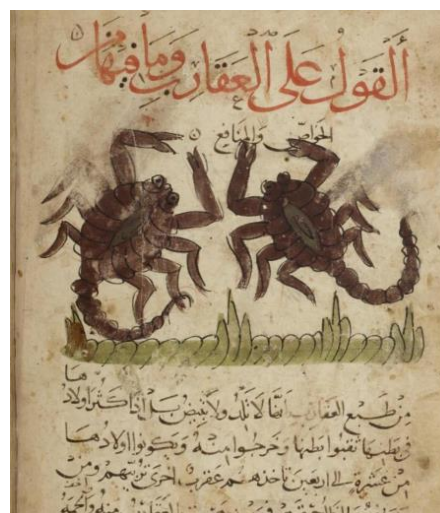 القول على العقارب وما فيها من
الخواص والمنافع
من طبع العقارب انها لا تلد ولا تبيض بل اذا كثر اولادها
في بطنها ثقبوا بطنها وخرجوا منه ويكونوا اولادها
من عشرة الى اربعين تاخذهم عقرب اخرى تربيهم ومن